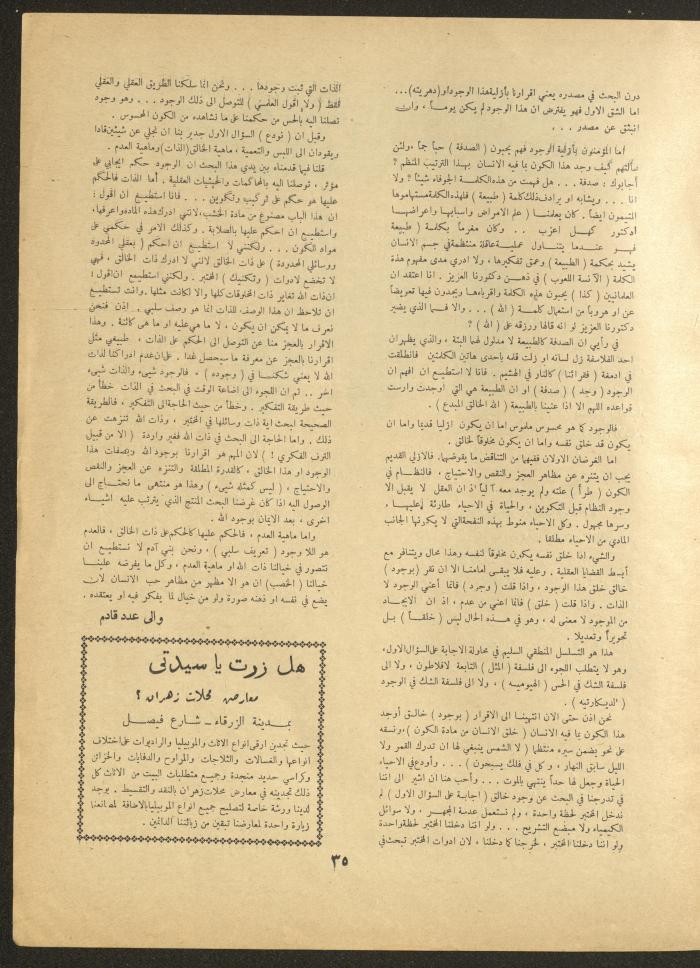 دون البحث في مصدره يعني اقرارنا بأزلية هذا الوجود او (دهريته)...
اما الشق الاول فهو يفترض ان هذا الوجود لم يكن يوماً ، وان
انبثق عن مصدر . . .
أما المؤمنون بأزلية الوجود فهم يحبون ( الصدفة ) حباً جماً ، ولئن
سألتهم كيف وجد هذا الكون بما فيه الانسان بهذا الترتيب المنظم ؟
أجابوك : صدفة . . . هل فهمت من هذه الكلمة الجوفاء شيئاً ؟ ولا
انا . . . ويشابه او يرادف ذلك كلمة ( طبيعة ) فلهذه الكلمة مستهاموها
المتيمون ايضاً . كان يعلمنا ( علم الامراض واسبابها واعراضها
دكتور كهل أعزب . . وكان مغرماً بكلمة ( طبيعة
فهو عندما يتناول عملية عاقلة منتظمة في جسم الانسان
يشيد بحكمة ( الطبيعة ) وعمق تفكيرها ، ولا ادري مدى مفهوم هذه
الكلمة ( الآنسة اللعوب ) في ذهن دكتورنا العزيز . انا اعتقد ان
العلمانيين ( كذا ) يحبون هذه الكلمة واقرباءها ويجدون فيها تعويضاً
عن او هروباً من استعمال كلمة ( الله ) . . . والا فما الذي يضير
دكتورنا العزيز لو انه قالها ورزقه على ( الله ) ؟
في رأيي ان الصدفة كالطبيعة لا مدلول لهما البتة ، والذي يظهر ان
احد الفلاسفة زل لسانه او زلت قلمه باحدى هاتين الكلمتين فانطلقت
في ادمغة ( فقرائنا ) كالنار في الهشيم . فانا لا استطيع ان افهم ان
الوجود ( وجد ) ( صدفة ) او ان الطبيعة هي التي اوجدت وارست
قواعده اللهم الا اذا عنينا بالطبيعة ( الله الخالق المبدع ) .
فالوجود كما هو محسوس ملموس اما ان يكون ازليا قديما واما ان
يكون قد خلق نفسه واما ان يكون مخلوقاً لخالق .
اما الغرضان الاولان ففيهما من التناقض ما يقوضهما . فالازلي القديم
يجب ان يتنزه عن مظاهر العجز والنقص والاحتياج ، فالنظام في
الكون ( طراً ) علته ولم يوجد معه آلياً اذ ان العقل لا يقبل الا
وجود النظام قبل التكوين ، والحياة في الاحياء طارئة عليها ،
وسرها مجهول . وكل الاحياء منوط بهذه النفحة التي لا يكونها الجانب
المادي من الاحياء مطلقا .
والشيء اذا خلق نفسه يكون مخلوقا لنفسه وهذا محال ويتنافر مع
أبسط القضايا العقلية . وعليه فلا يبقى امامنا الا ان نقر ( بوجود )
خالق خلق هذا الوجود ، واذا قلت ( وجد ) فانما أعني الوجود لا
الذات . واذا قلت ( خلق ) فانما اعني من عدم ، اذ ان الايجاد
من الموجود لا معنى له ، وهو في هذه الحال ليس ( خلقاً ) بل
تحويراً وتعديلا .
هذا هو التسلسل المنطقي السليم في محاولة الاجابة على السؤال الاول،
وهو لا يتطلب اللجوء الى فلسفة ( المثل ) التابعة لافلاطون ، ولا الى
فلسفة الشك في الحس ( الهيوميه ) ، ولا الى فلسفة الشك في الوجود
( الديكارتيه ) .
نحن اذن حتى الان انتهينا الى الاقرار ( بوجود ) خالق أوجد
هذا الكون بما فيه الانسان ( خلق الانسان من مادة الكون ) ، ونسقه
على نحو يضمن سيره منتظما ( لا الشمس ينبغي لها ان تدرك القمر ولا
الليل سابق النهار ، وكل في فلك يسبحون ) . . . وأودع في الاحياء
الحياة وجعل لها حداً ينتهي بالموت . . . وأحب هنا ان اشير الى اننا
في تدرجنا في البحث عن وجود خالق ( اجابة على السؤال الاول ) لم
ندخل المختبر لحظة واحدة ، ولم نستعمل عدسة المجهر ، ولا سوائل
الكيمياء ولا مبضع التشريح . . . ولو اننا دخلنا المختبر لحظة واحدة
ولو اننا دخلنا المختبر ، لخرجنا كما دخلنا ، لان ادوات المختبر تبحث في
الذات التي ثبت وجودها . . . ونحن انما سلكنا الطريق العقلي والعقلي
فقط ( ولا اقول العلمي ) للتوصل الى ذلك الوجود . . . وهو وجود
تصلنا اليه بالحس من حكمنا على ما نشاهده من الكون المحسوس .
وقبل ان ( نودع ) السؤال الاول جدير بنا ان نجلي عن شيئين قادا
ويقودان الى اللبس والتعمية ، ماهية الخالق (الذات) وماهية العدم .
قلنا فيما قدمناه بين يدي هذا البحث ان الوجود حكم ايجابي على
مؤثر ، توصلنا اليه بالمحاكمات والحيثيات العقلية . أما الذات فالحكم
عليها هو حكم على تركيب وتكوين . . . فانا استطيع ان اقول :
ان هذا الباب مصنوع من مادة الخشب، لانني ادرك هذه الماده واعرفها،
واستطيع ان احكم عليها بالصلابة . وكذلك الامر في حكمي على
مواد الكون . . . ولكنني لا استطيع ان احكم ( بعقلي المحدود
ووسائلي المحدودة ) على ذات الخالق لانني لا ادرك ذات الخالق ، فهي
لا تخضع لادوات ( وتكنيك ) المختبر . ولكنني استطيع ان اقول :
ان ذات الله تغاير ذات المخلوقات كلها والا لكانت مثلها . وانت تستطيع
ان تلاحظ ان هذا الوصف للذات انما هو وصف سلبي ، اذن فنحن
نعرف ما لا يمكن ان يكون ، لا ما هي عليه او ما هي كائنة . وهذا
الاقرار بالعجز منا عن التوصل الى الحكم على الذات ، طبيعي مثل
اقرارنا بالعجز عن معرفة ما سيحصل غدا . على ان عدم ادراكنا لذات
الله لا يعني شكنا في ( وجوده ) ، فالوجود شيء والذات شيء
اخر . . ثم ان اللجوء الى اضاعة الوقت في البحث في الذات خطأ من
حيث طريقة التفكير . وخطأ من حيث الحاجة الى التفكير ، فالطريقة
الصحيحة لبحث اية ذات وسائلها في المختبر ، وذات الله تنزهت عن
ذلك . واما الحاجة الى البحث في ذات الله فغير واردة ( الا من قبيل
الترف الفكري ! ) لان المهم هو اقرارنا بوجود الله وبصفات هذا
الوجود او هذا الخالق ، كالقدرة المطلقة والتنزه عن العجز والنقص
والاحتياج ، ( ليس كمثله شيء ) وهذا هو منتهى ما نحتاج الى
الوصول اليه اذا كان غرضنا البحث المنتج الذي يترتب عليه اشياء
اخرى ، بعد الايمان بوجود الله .
واما ماهية العدم ، فالحكم عليها كالحكم على ذات الخالق ، فالعدم
هو اللا وجود ( تعريف سلبي ) ، ونحن بني آدم لا نستطيع ان
نتصور في خيالنا ذات الله او ماهية العدم ، وكل ما يفرضه علينا
خيالنا ( الخصب ) ان هو الا مظهر من مظاهر حب الانسان لان
يضع في نفسه او ذهنه صورة ولو من خيال لما يفكر فيه او يعتقده .
والى عدد قادم
هل زرت يا سيدتي
معارض محلات زهران ؟
بمدينة الزرقاء - شارع فيصل
حيث تجدين ارقى انواع الاثاث والموبيليا والراديوات على اختلاف
انواعها والغسالات والثلاجات والمراوح والدفايات والخزائن
وكراسي حديد منجدة وجميع متطلبات البيت من الاثاث كل
ذلك تجدينه في معارض محلات زهران بالنقد والتقسيط . يوجد
لدينا ورشة خاصة لتصليح جميع انواع الموبيليا بالاضافة لمصانعنا
زيارة واحدة لمعارضنا تبقين من زبائننا الدائمين .
٣٥